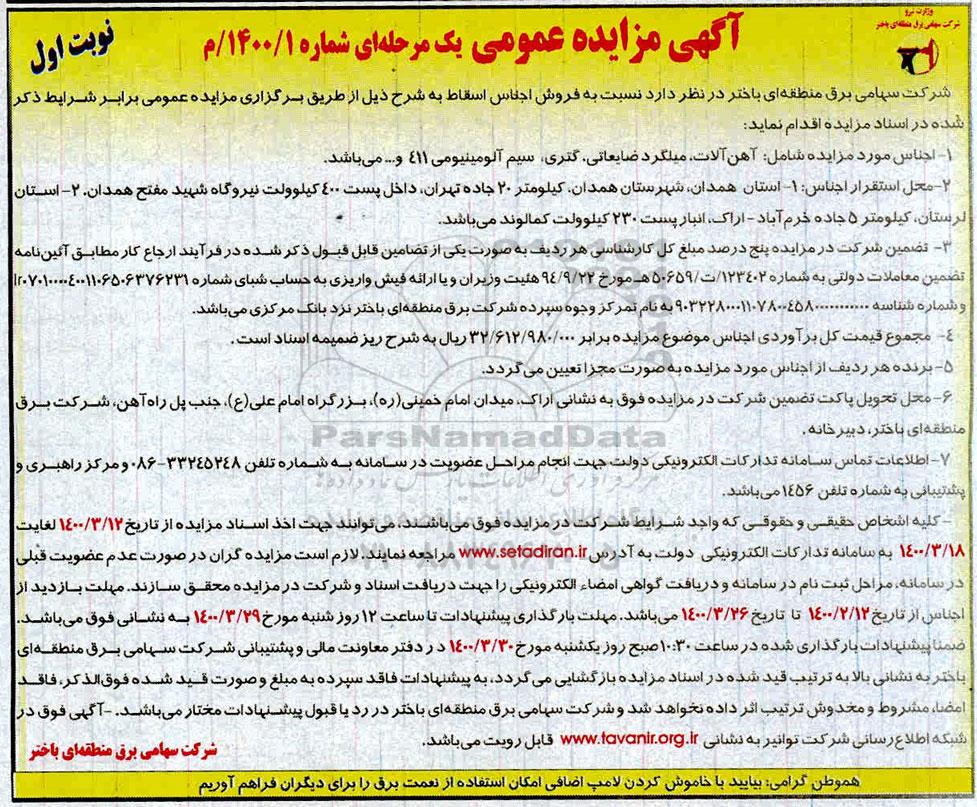 وزارت نیرو
شرکت سهامی برق منطقه‌ای باختر
آگهی مزایده عمومی یک مرحله‌ای شماره ۱۴۰۰/۱/م
نوبت اول
شرکت سهامی برق منطقه‌ای باختر در نظر دارد نسبت به فروش اجناس اسقاط به شرح ذیل از طریق برگزاری مزایده عمومی برابر شرایط ذکر
شده در اسناد مزایده اقدام نماید:
۱- اجناس مورد مزایده شامل: آهن‌آلات، میلگرد ضایعاتی، گتری، سیم آلومینیومی ۴۱۱ و... می‌باشد.
۲-محل استقرار اجناس: ۱- استان همدان، شهرستان همدان، کیلومتر ۲۰ جاده تهران، داخل پست ۴۰۰ کیلوولت نیروگاه شهید مفتح همدان. ۲- استان
لرستان، کیلومتر ۵ جاده خرم‌آباد - اراک، انبار پست ۲۳۰ کیلوولت کمالوند می‌باشد.
۳- تضمین شرکت در مزایده پنج درصد مبلغ کل کارشناسی هر ردیف به صورت یکی از تضامین قابل قبول ذکر شده در فرآیند ارجاع کار مطابق آئین‌نامه
تضمین معاملات دولتی به شماره ۱۲۳۴۰۲/ت/۵۰۶۵۹ هـ مورخ ۹۴/۹/۲۲ هئیت وزیران و یا ارائه فیش واریزی به حساب شبای شماره
و شماره شناسه به نام تمرکز وجوه سپرده شرکت برق منطقه‌ای باختر نزد بانک مرکزی می‌باشد.
۴- مجموع قیمت کل برآوردی اجناس موضوع مزایده برابر ۳۲/۶۱۲/۹۸۰/۰۰۰ ریال به شرح ریز ضمیمه اسناد است.
۵- برنده هر ردیف از اجناس مورد مزایده به صورت مجزا تعیین می‌گردد.
۶-محل تحویل پاکت تضمین شرکت در مزایده فوق به نشانی اراک، میدان امام خمینی(ره)، بزرگراه امام علی(ع)، جنب پل راه‌آهن، شرکت برق
منطقه‌ای باختر، دبیرخانه.
ParsNamadData
۷- اطلاعات تماس سامانه تدارکات الکترونیکی دولت جهت انجام مراحل عضویت در سامانه به شماره تلفن ۳۳۲۴۵۲۴۸-۰۸۶ و مرکز راهبری و
پشتیبانی به شماره تلفن ۱۴۵۶ می‌باشد.
- کلیه اشخاص حقیقی و حقوقی که واجد شرایط شرکت در مزایده فوق می‌باشند، می‌توانند جهت اخذ اسناد مزایده از تاریخ ۱۴۰۰/۳/۱۲ لغایت
۱۴۰۰/۳/۱۸ به سامانه تدارکات الکترونیکی دولت به آدرس www.setadiran.ir مراجعه نمایند. لازم است مزایده گران در صورت عدم عضویت قبلی
در سامانه، مراحل ثبت نام در سامانه و دریافت گواهی امضاء الکترونیکی را جهت دریافت اسناد و شرکت در مزایده محقق سازند. مهلت بازدید از
اجناس از تاریخ ۱۴۰۰/۲/۱۲ تا تاریخ ۱۴۰۰/۳/۲۶ می‌باشد. مهلت بارگذاری پیشنهادات تا ساعت ۱۲ روز شنبه مورخ ۱۴۰۰/۳/۲۹ به نشانی فوق می‌باشد.
ضمنا پیشنهادات بارگذاری شده در ساعت ۱۰:۳۰ صبح روز یکشنبه مورخ ۱۴۰۰/۳/۳۰ در دفتر معاونت مالی و پشتیبانی شرکت سهامی برق منطقه‌ای
باختر به نشانی بالا به ترتیب قید شده در اسناد مزایده بازگشایی می‌گردد، به پیشنهادات فاقد سپرده به مبلغ و صورت قید شده فوق‌الذکر، فاقد
امضا، مشروط و مخدوش ترتیب اثر داده نخواهد شد و شرکت سهامی برق منطقه‌ای باختر در رد یا قبول پیشنهادات مختار می‌باشد. -آگهی فوق در
شبکه اطلاع‌رسانی شرکت توانیر به نشانی www.tavanir.org.ir قابل رویت می‌باشد.
شرکت سهامی برق منطقه‌ای باختر
هموطن گرامی: بیایید با خاموش کردن لامپ اضافی امکان استفاده از نعمت برق را برای دیگران فراهم آوریم